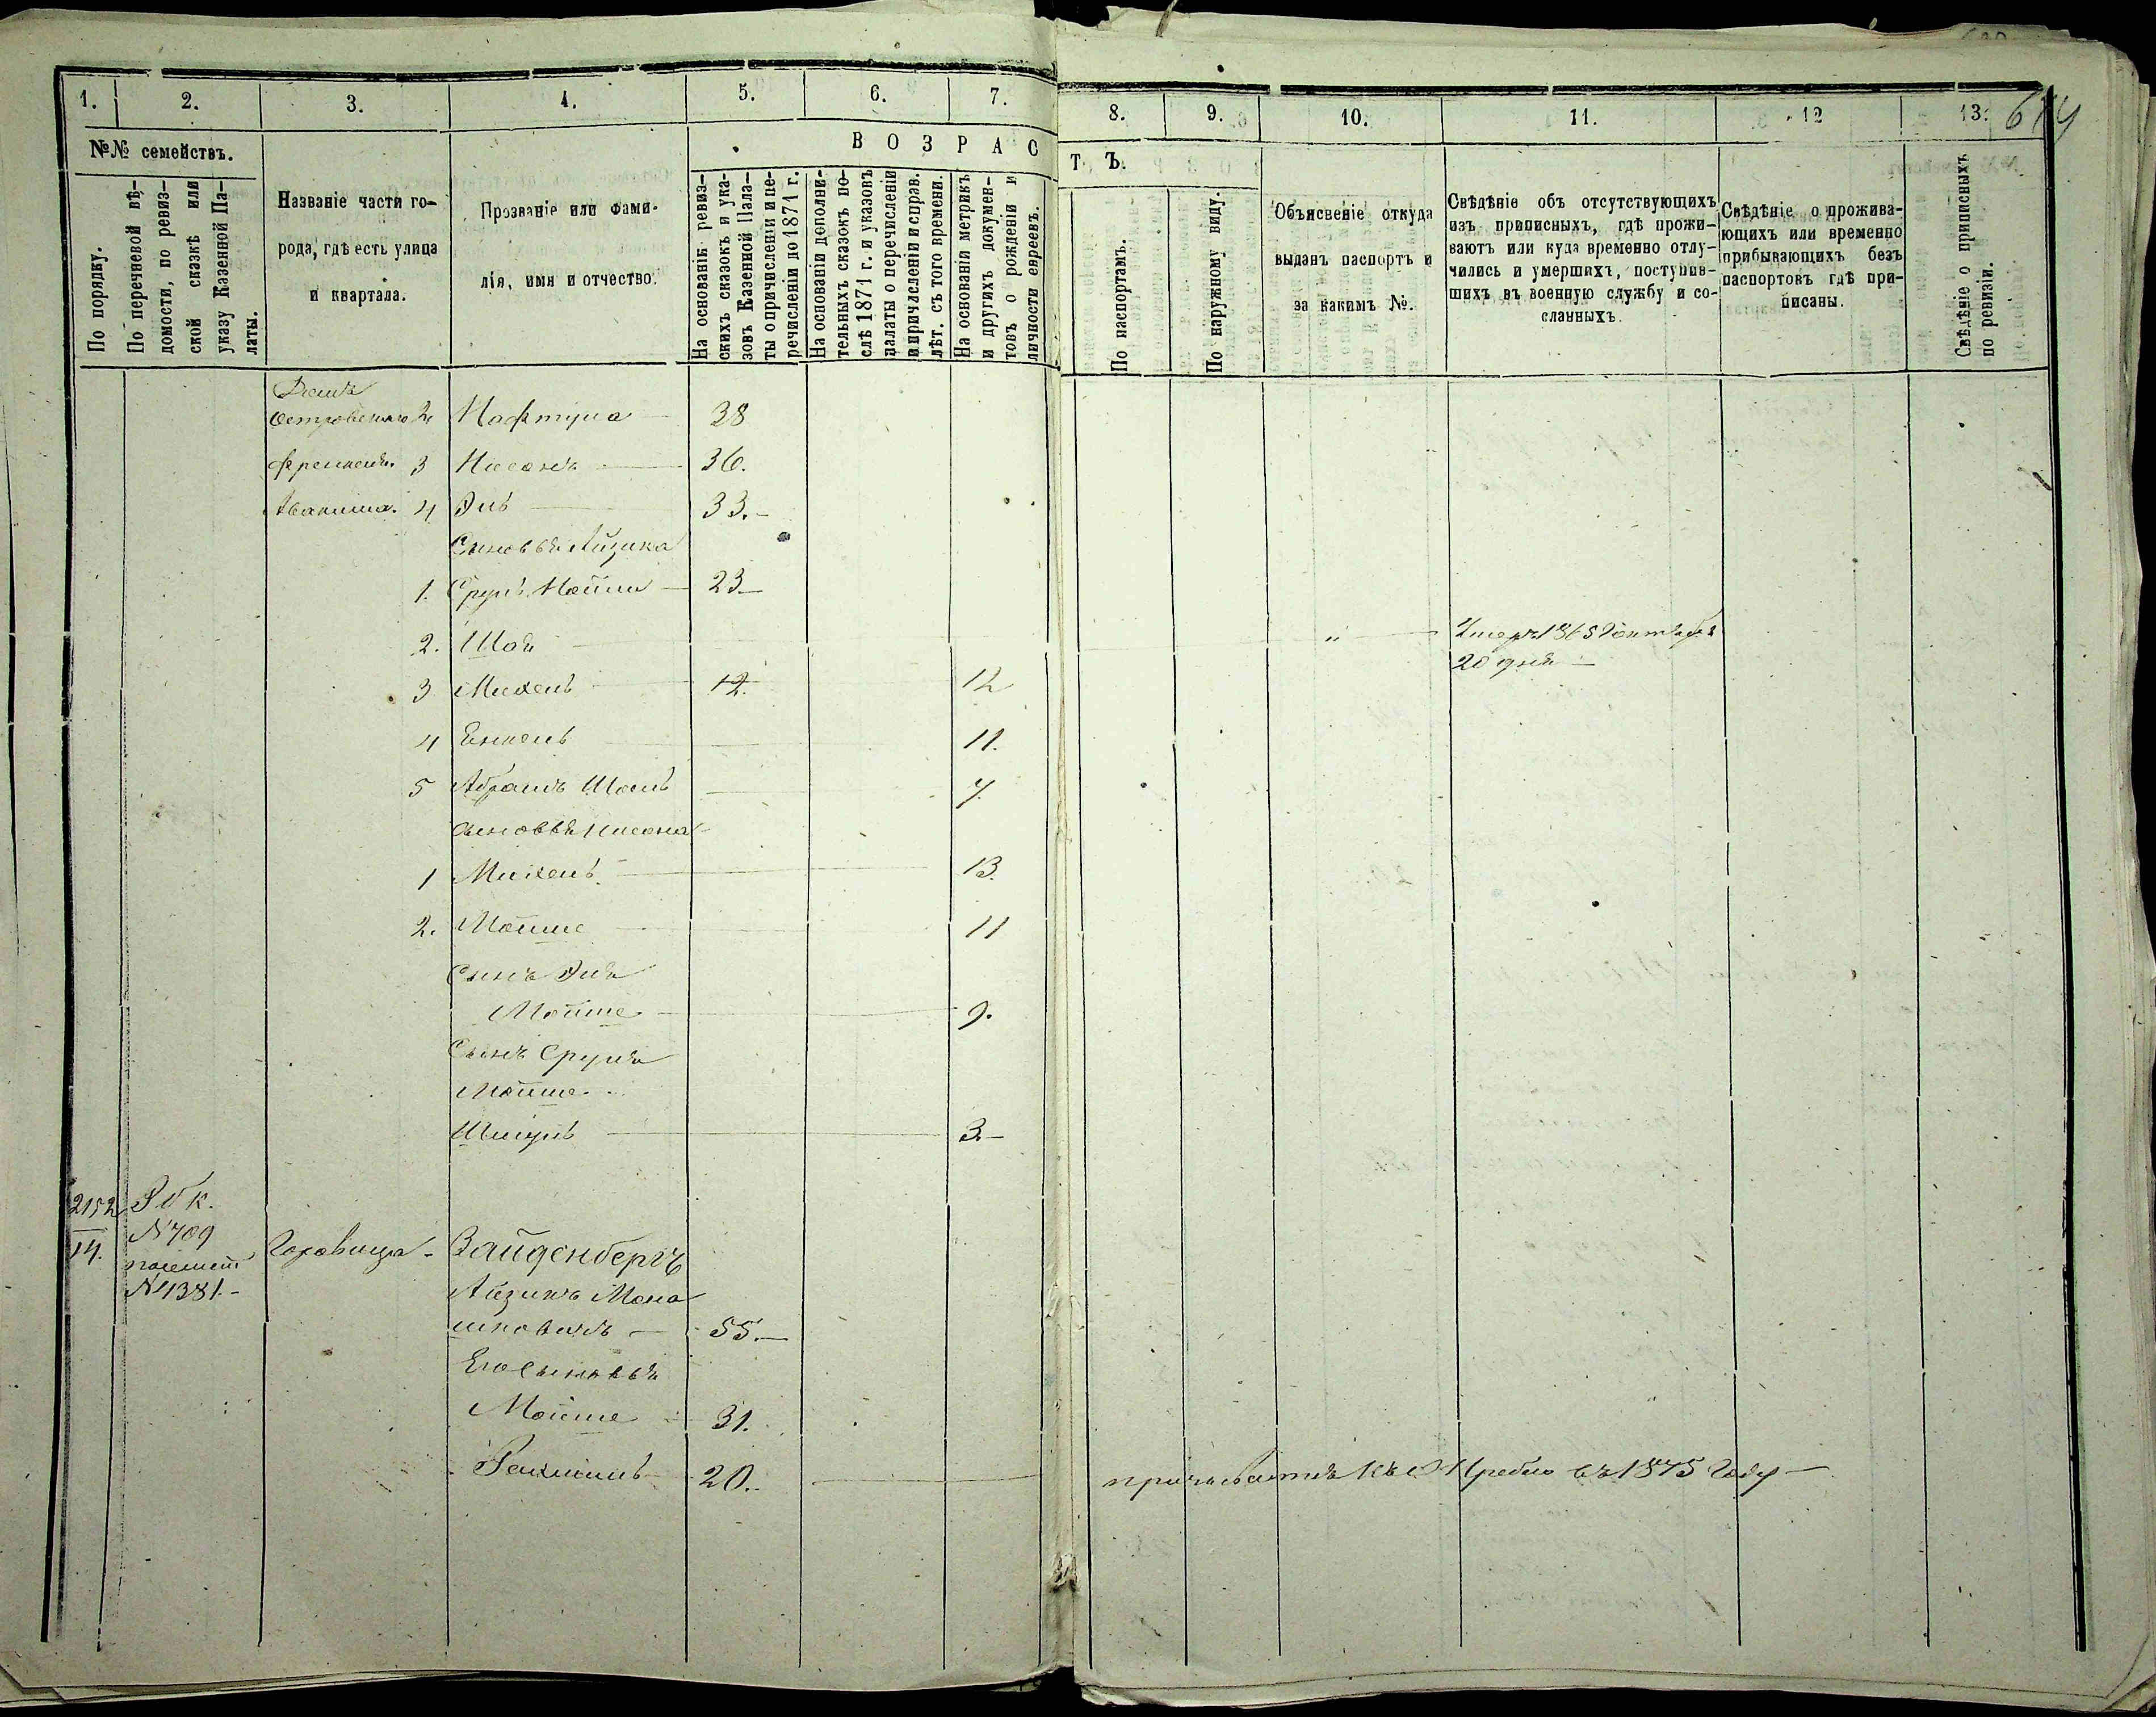 1. 2. 3. 4. 5. 6. 7. 8. 9. 10. 11. 12 13. 614
№№ семействъ.
По порядку.
По перечневой вѣ-
домости, по ревиз-
ской сказкѣ или
указу Казенной Па-
латы.
Названіе части го-
рода, гдѣ есть улица
и квартала.
Прозваніе или фами-
лія, имя и отчество.
ВОЗРАСТЪ.
На основаніи ревиз-
скихъ сказокъ и ука-
зовъ Казенной Пала-
ты о причисленіи и пе-
речисленіи до 1871 г.
На основаніи дополни-
тельныхъ сказокъ по-
слѣ 1871 г. и указовъ
палаты о перечисленіи
и причисленіи и справ.
лѣт. съ того времени.
На основаніи метрикъ
и другихъ докумен-
товъ о рожденіи и
личности евреевъ.
По паспортамъ.
По наружному виду.
Объясвеніе откуда
выданъ паспортъ и
за какимъ №.
Свѣдѣніе объ отсутствующихъ
изъ приписныхъ, гдѣ прожи-
ваютъ или куда временно отлу-
чились и умершихъ, поступив-
шихъ въ военную службу и со-
сланныхъ.
Свѣдѣніе о прожива-
ющихъ или временно
прибывающихъ безъ
паспортовъ гдѣ при-
писаны.
Свѣдѣніе о приписныхъ
по ревизіи.
Островскаго 2 Нафтула 38
Френкеля 3 Нисонъ 36.
4 Эль 33.
Сыновья Айзика
1. Сруль Мойше 23
2. Шая " Умеръ 1865 Октября
20 дня
3 Михель 12. 12
4 Енкель 11.
5 Абрамъ Шоель 7.
Сыновья Нисона
1 Михель 13.
2. Мойше 11
Сынъ Эля
Мойше 9.
Сынъ Сруля
Мойше
Шмуль 3.
2152
14.
Р б к.
№709
№4381.
Горовица Зайденбергъ
Айзикъ Мона
шковичъ 55.
Его Сыновья
Мойше 31.
20. въ 1875 Году